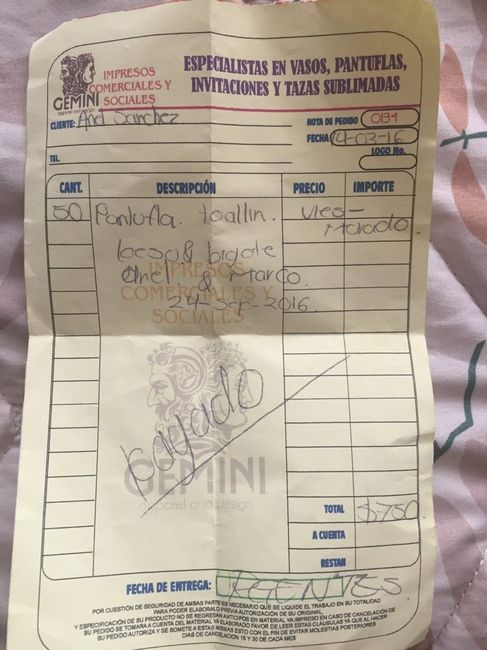 GEMINI
apparel and design
IMPRESOS
COMERCIALES Y
SOCIALES
ESPECIALISTAS EN VASOS, PANTUFLAS,
INVITACIONES Y TAZAS SUBLIMADAS
CLIENTE: Anel Sanchez
NOTA DE PEDIDO 0134
FECHA 14-03-16
TEL.
LOGO No.
CANT. DESCRIPCIÓN PRECIO IMPORTE
50 Pantufla toallin.
Morado.
beso & bigote
Anel & Marco.
24-Sep-2016.
IMPRESOS
COMERCIALES Y
SOCIALES
pagado
GEMINI
apparel and design
TOTAL $750.
A CUENTA
RESTAN
FECHA DE ENTREGA: URGENTES
POR CUESTIÓN DE SEGURIDAD DE AMBAS PARTES ES NECESARIO QUE SE LIQUIDE EL TRABAJO EN SU TOTALIDAD
PARA PODER ELABORALO PREVIA AUTORIZACIÓN DE SU ORIGINAL.
Y ESPECIFICACIÓN DE SU PRODUCTO NO SE REGRESAN ANTICIPOS EN MATERIAL YA IMPRESO EN CASO DE CANCELACIÓN DE
SU PEDIDO SE TOMARA A CUENTA DEL MATERIAL YA ELABORADO FAVOR DE LEER ESTAS CLAUSULAS YA QUE AL HACER
SU PEDIDO AUTORIZA Y SE SOMETE A ESTAS MISMAS ESTO CON EL FIN DE EVITAR MOLESTIAS POSTERIORES
DIAS DE CANCELACION 15 Y 30 DE CADA MES